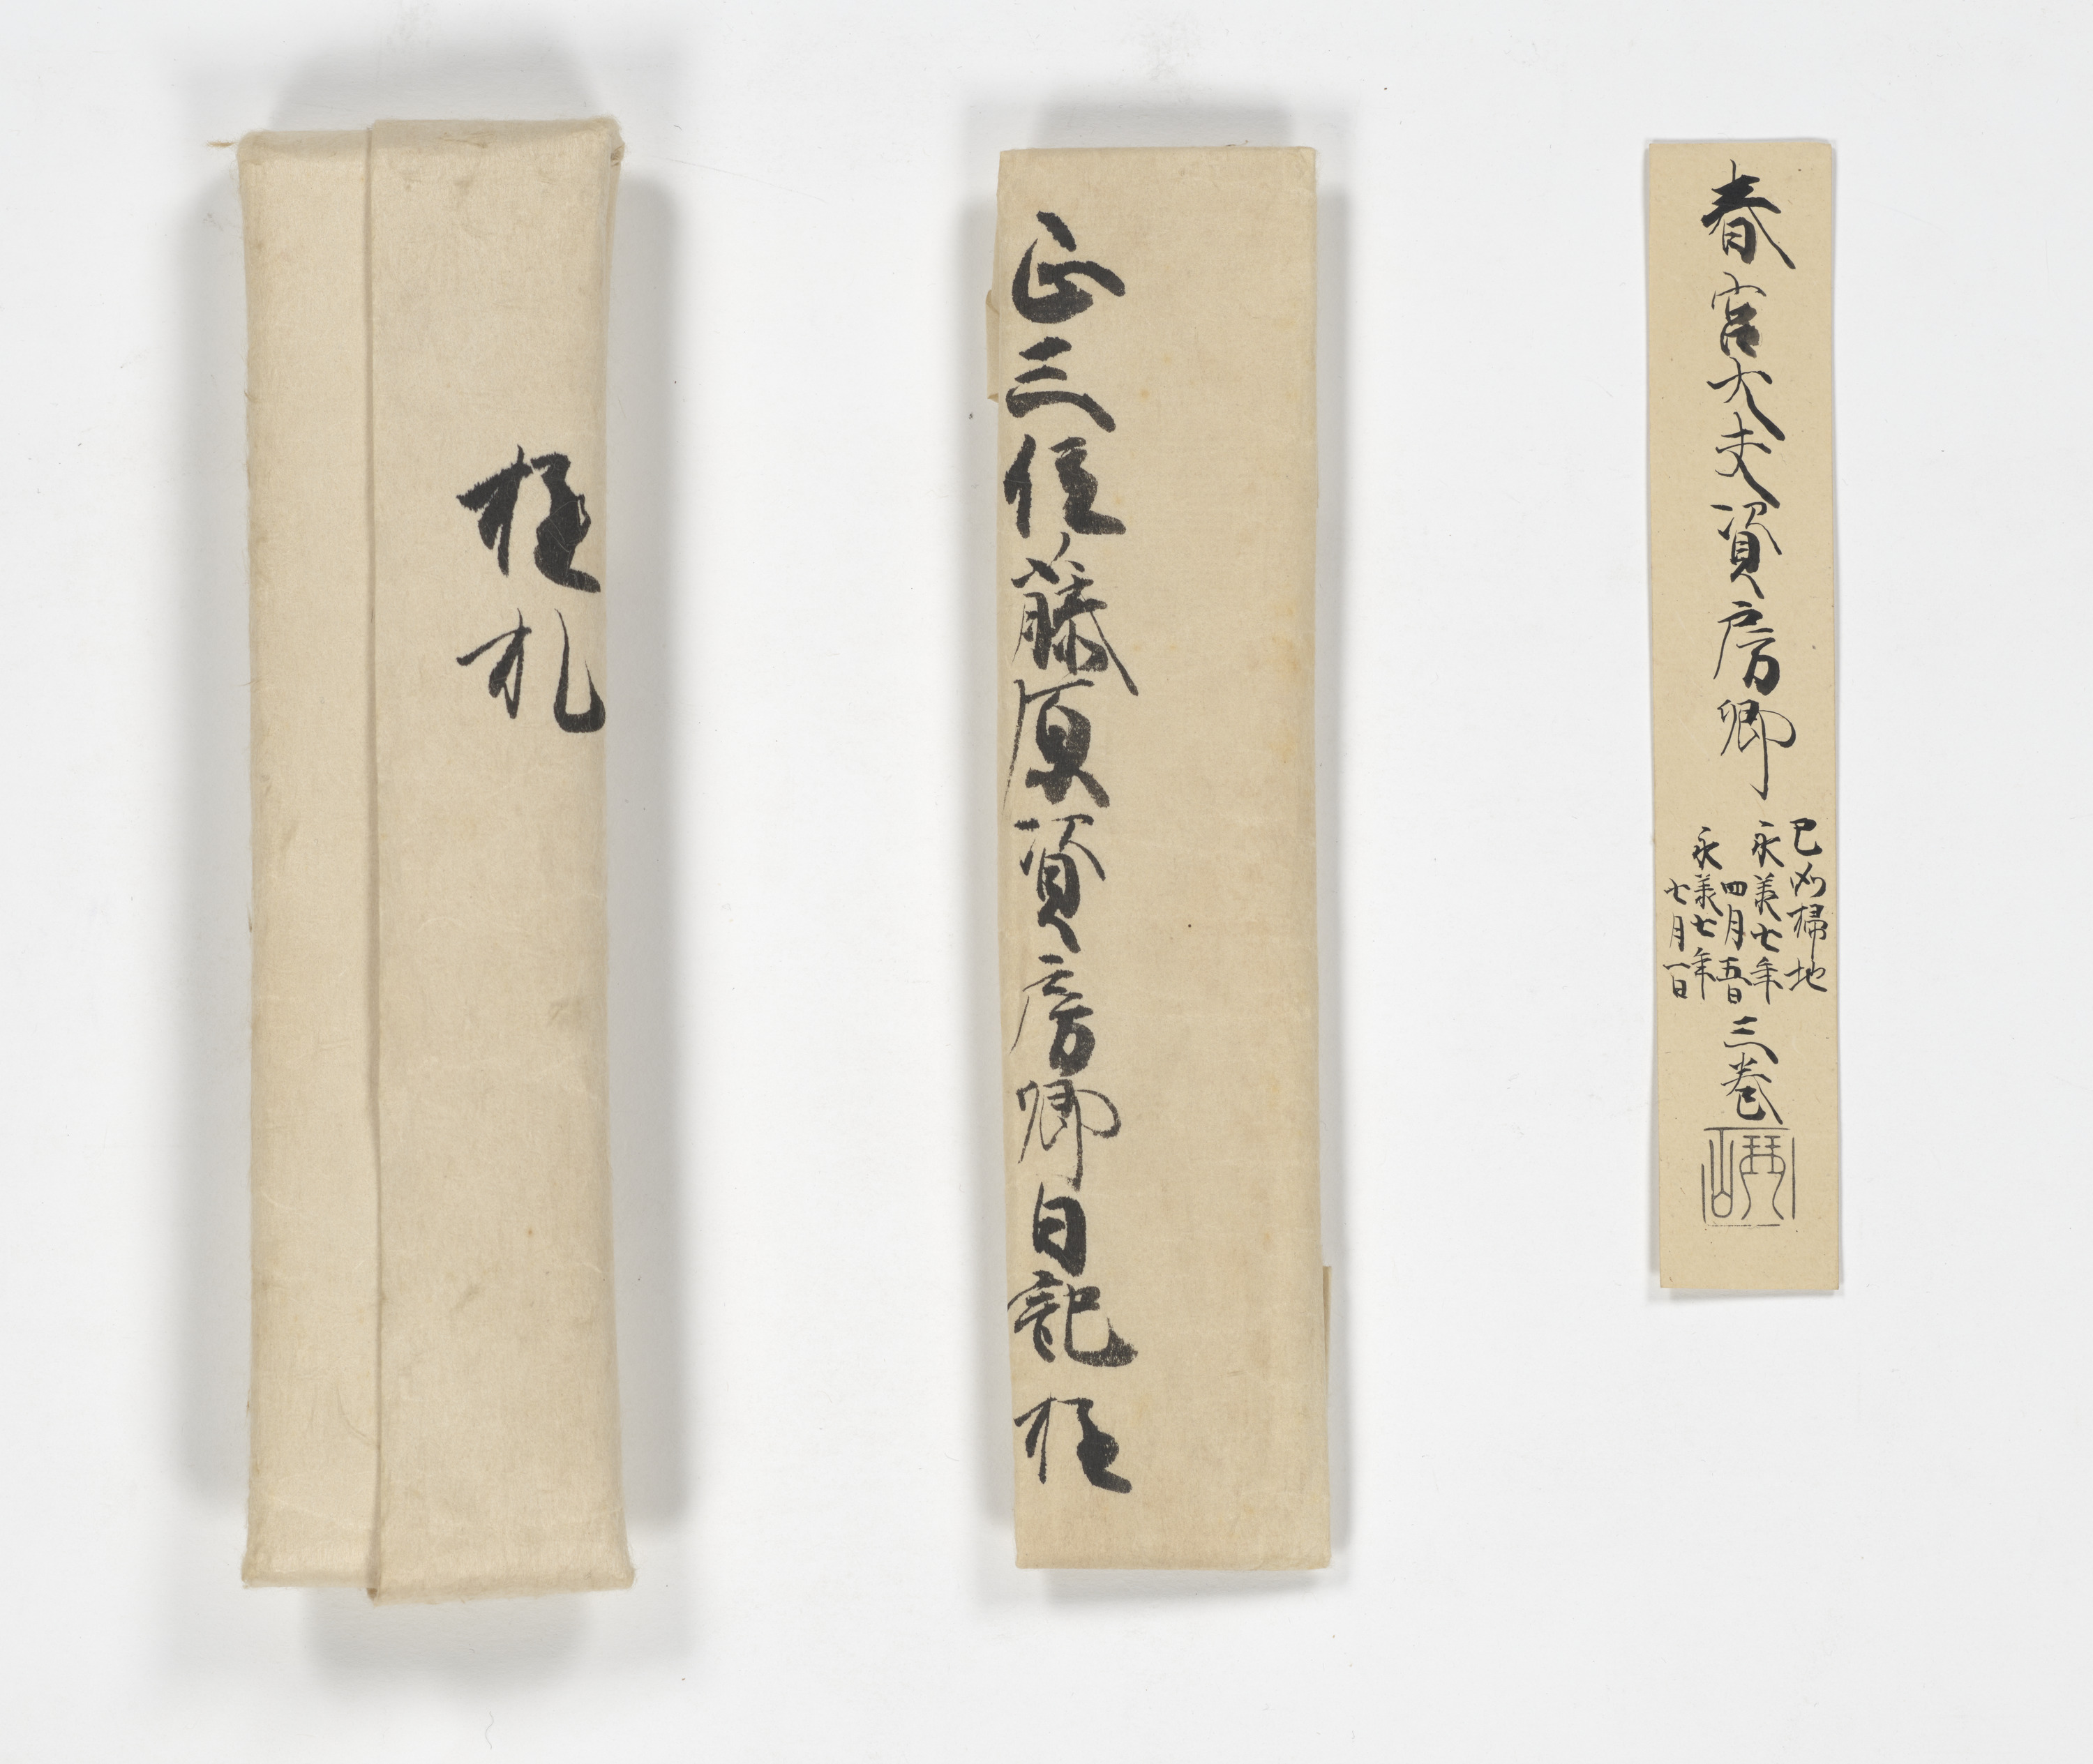 極札
正三位藤原資房卿日記 極
春宮大夫資房卿
掃地
永承七年
四月五日
永承七年
七月一日
三巻
琴山